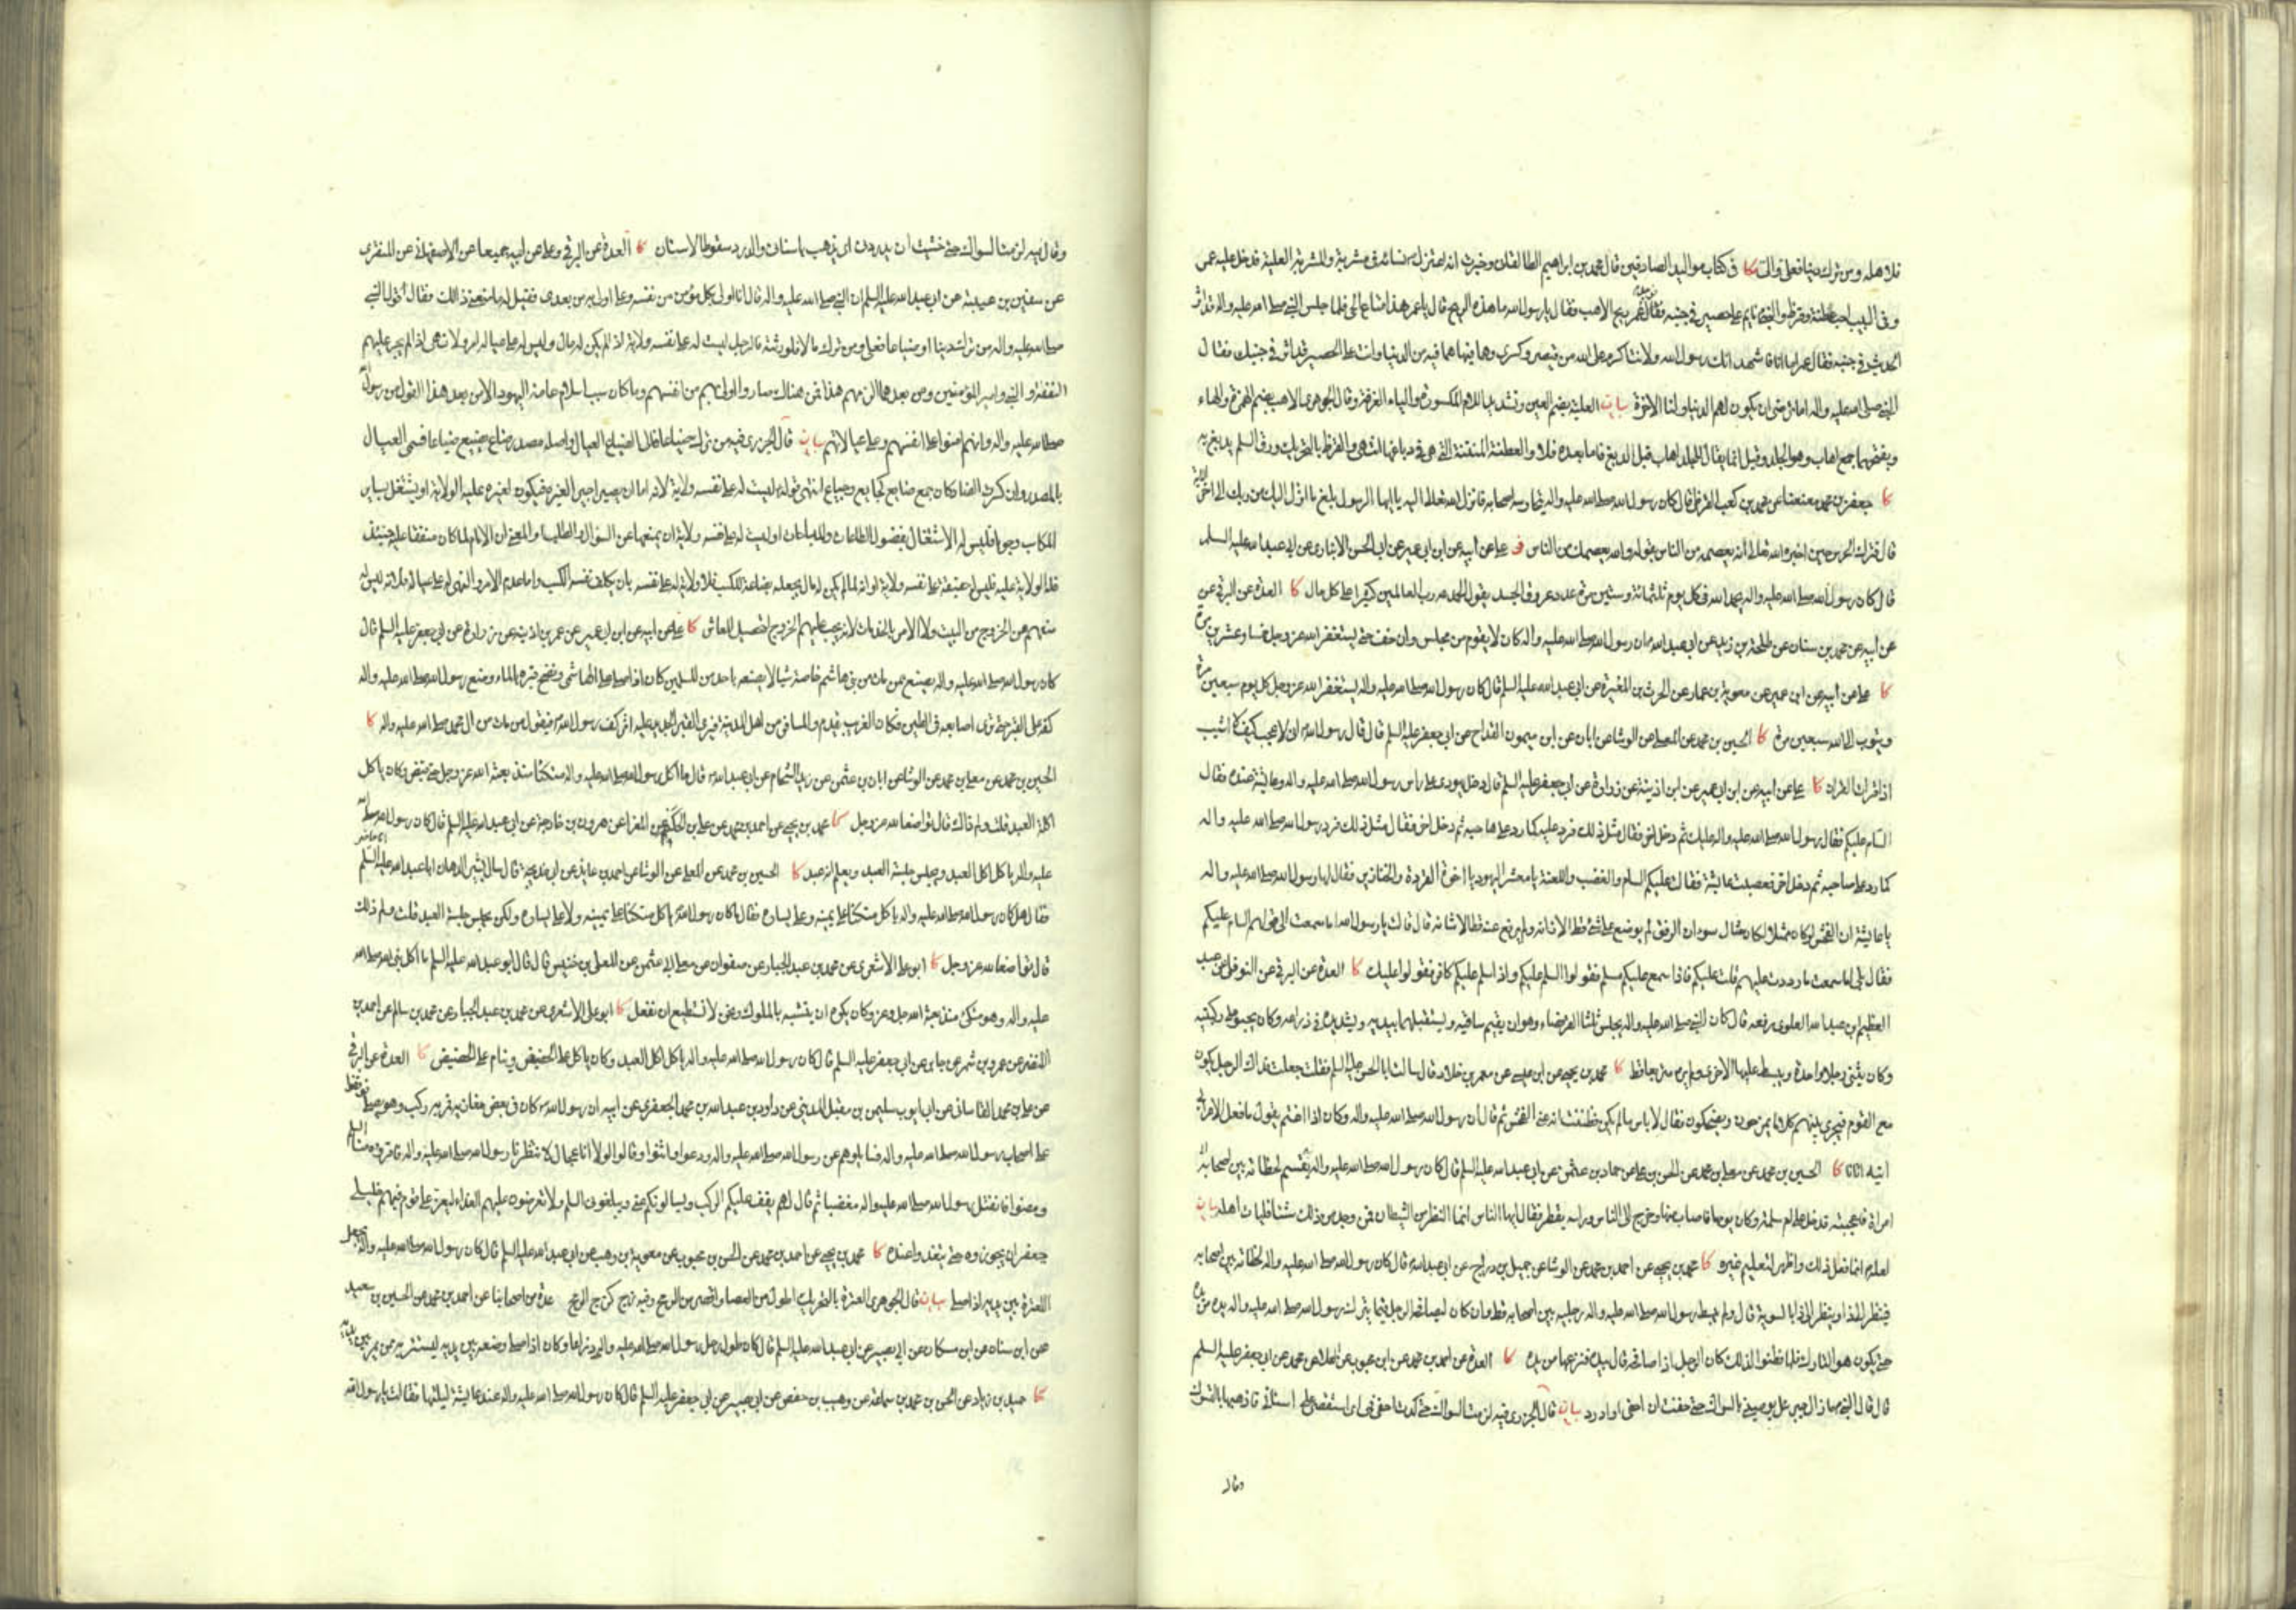 فلاهله ومن ترك ضياعا فعلي والي كا في كتاب مواليد الصادقين قال محمد بن ابراهيم الطالقاني وخيرت انه اعتزل نسائه في مشربة والمشربة العلية فدخل عليه عمر
وفي البيت اهب عطنة وقرظ والنبي نايم على حصير في جنبه فقال عمر ريح الاهب فقال يا رسول الله ما هذه الريح قال يا عمر هذا متاع الحي فلما جلس النبي صلى الله عليه واله قد اثر
الحصير في جنبه فقال عمر اما انا فاشهد انك رسول الله ولانت اكرم على الله من قيصر وكسرى وهما فيما هما فيه من الدنيا وانت على الحصير قد اثر في جنبك فقال
النبي صلى الله عليه واله اما ترضى ان يكون لهم الدنيا ولنا الاخرة بيان العلية بضم العين وتشديد اللام المكسورة والياء الغرفة وقال الجوهري الاهب بضم الهمزة والهاء
وبفتحهما جمع اهاب وهو الجلد وقيل انما يقال للجلد اهاب قبل الدبغ فاما بعده فلا والعطنة المنتنة التي هي في دباغها انتهى والقرظ بالتحريك ورق السلم يدبغ به
كا جعفر بن محمد معنعنا عن محمد بن كعب القرظي قال كان رسول الله صلى الله عليه واله يتحارسه اصحابه فانزل الله تعالى اليه يا ايها الرسول بلغ ما انزل اليك من ربك الى اخر الاية
قال فترك الحرس حين اخبره الله تعالى انه يعصمه من الناس بقوله والله يعصمك من الناس ف علي عن ابيه عن ابن ابي عمير عن ابي الحسن الانباري عن ابي عبد الله عليه السلم
قال كان رسول الله صلى الله عليه واله يحمد الله في كل يوم ثلثمائة وستين مرة عدد عروق الجسد يقول الحمد لله رب العالمين كثيرا على كل حال كا العدة عن البرقي عن
عن ابيه عن محمد بن سنان عن طلحة بن زيد عن ابي عبد الله ان رسول الله صلى الله عليه واله كان لا يقوم من مجلس وان خف حتى يستغفر الله عز وجل خمسا وعشرين مرة
كا علي عن ابيه عن ابن ابي عمير عن معوية بن عمار عن الحرث بن المغيرة عن ابي عبد الله عليه السلم قال كان رسول الله صلى الله عليه واله يستغفر الله عز وجل كل يوم سبعين مرة
ويتوب الى الله سبعين مرة كا الحسين بن محمد عن المعلى عن الوشا عن ابان عن ابن ميمون القداح عن ابي جعفر عليه السلم قال قال رسول الله اني لاعجب كيف لا اشيب
اذا قرات القران كا علي عن ابيه عن ابن ابي عمير عن ابن اذينة عن زرارة عن ابي جعفر عليه السلم قال دخل يهودي على رسول الله صلى الله عليه واله وعايشة عنده فقال
السام عليكم فقال رسول الله صلى الله عليه واله عليك ثم دخل اخر فقال مثل ذلك فرد عليه كما رد على صاحبه ثم دخل اخر فقال مثل ذلك فرد رسول الله صلى الله عليه واله
كما رد على صاحبيه ثم دخل اخر فغضبت عايشة فقالت عليكم السام والغضب واللعنة يا معشر اليهود يا اخوة القردة والخنازير فقال لها رسول الله صلى الله عليه واله
يا عايشة ان الفحش لو كان ممثلا لكان مثال سوء ان الرفق لم يوضع على شيء قط الا زانه ولم يرفع عنه قط الا شانه قال قالت يا رسول الله اما سمعت الى قولهم السام عليكم
فقال بلى اما سمعت ما رددت عليهم قلت عليكم فاذا سلم عليكم مسلم فقولوا السلم عليكم واذا سلم عليكم كافر فقولوا عليك كا العدة عن البرقي عن النوفلي عن عبد
العظيم بن عبد الله العلوي رفعه قال كان النبي صلى الله عليه واله يجلس ثلثا القرفصاء وهو ان يقيم ساقيه ويستقبلهما بيديه ويشد يده في ذراعه وكان يجثو على ركبتيه
وكان يثني رجلا واحدة ويبسط عليها الاخرى ولم ير متربعا قط كا محمد بن يحيى عن ابن عيسى عن معمر بن خلاد قال سالت ابا الحسن عليه السلم فقلت جعلت فداك الرجل يكون
مع القوم فيجري بينهم كلام يمزحون ويضحكون فقال لا باس ما لم يكن فظننت انه عنى الفحش ثم قال ان رسول الله صلى الله عليه واله وكان اذا اغتم يقول ما فعل الاعرابي
ليته اتانا كا الحسين بن محمد عن معلى بن محمد عن الحسن بن علي عن حماد بن عثمن عن ابي عبد الله عليه السلم قال كان رسول الله صلى الله عليه واله يقسم لحظاته بين اصحابه
امراة فاعجبته فدخل على ام سلمة وكان يومها فاصاب منها وخرج الى الناس وراسه يقطر فقال ايها الناس انما النظر من الشيطان فمن وجد من ذلك شيئا فليات اهله بيان
لعله انما فعل ذلك واظهر لتعليم غيره كا محمد بن يحيى عن احمد بن محمد عن الوشا عن جميل بن دراج عن ابي عبد الله قال كان رسول الله صلى الله عليه واله يقسم لحظاته بين اصحابه
فينظر الى ذا وينظر الى ذا بالسوية قال ولم يبسط رسول الله صلى الله عليه واله رجليه بين اصحابه قط وان كان ليصافحه الرجل فما يترك رسول الله صلى الله عليه واله يده من يده
حتى يكون هو التارك فلما فطنوا لذلك كان الرجل اذا صافحه قال بيده فنزعها من يده كا العدة عن احمد بن محمد عن ابن محبوب عن العلا عن محمد عن ابي جعفر عليه السلم
قال قال النبي ما زال جبرئيل يوصيني بالسواك حتى خفت ان احفي او ادرد بيان قال الجزري فيه لزمت السواك حتى كدت احفي فمي اي استقصي على اسناني فاذهبها بالتسوك
وقال
وقال فيه لزمت السواك حتى خشيت ان يدردني اي يذهب باسناني والدرد سقوط الاسنان كا العدة عن البرقي وعلي عن ابيه جميعا عن الاصفهاني عن المنقري
عن سفين بن عيينة عن ابي عبد الله عليه السلم ان النبي صلى الله عليه واله قال انا اولى بكل مؤمن من نفسه وعلي اولى به من بعدي فقيل له ما معنى ذلك فقال قول النبي
صلى الله عليه واله من ترك دينا او ضياعا فعلي ومن ترك مالا فلورثته فالرجل ليست له على نفسه ولاية اذا لم يكن له مال وليس له على عياله امر ولا نهي اذا لم يجر عليهم
النفقة والنبي وامير المؤمنين ومن بعدهما الزمهم هذا فمن هناك صاروا اولى بهم من انفسهم وما كان سبب اسلام عامة اليهود الا من بعد هذا القول من رسول الله
صلى الله عليه واله وانهم امنوا على انفسهم وعلى عيالاتهم بيان قال الجزري فيه من ترك ضياعا فالي الضياع العيال واصله مصدر ضاع يضيع ضياعا فسمي العيال
بالمصدر وان كسرت الضاد كان جمع ضايع كجايع وجياع انتهى قوله ليست له على نفسه ولاية لانه اما ان يصير اجير الغيره فيكون لغيره عليه الولاية او يشتغل بساير
المكاسب وجوبا فليس له الاشتغال بفضول الطاعات والمباحات او ليست له على نفسه ولاية ان يمنعها عن السؤال والطلب والمعنى ان الامام لما كان منفقا عليه حينئذ
فله الولاية عليه فليس حقيقة على نفسه ولاية او انه لما لم يكن له مال يجعله بضاعة للكسب فلا ولاية له على نفسه بان يكلف نفسه الكسب واما عدم الامر والنهي له على عياله فلانه ليس له
منعهم من الخروج من البيت ولا الامر بالخدمات لانه يجب عليهم الخروج لتحصيل المعاش كا علي عن ابيه عن ابن ابي عمير عن عمر بن اذينة عن زرارة عن ابي جعفر عليه السلم قال
كان رسول الله صلى الله عليه واله يصنع بمن مات من بني هاشم خاصة شيئا لا يصنعه باحد من المسلمين كان اذا صلى على الهاشمي ونضح قبره بالماء وضع رسول الله صلى الله عليه واله
كفه على القبر حتى ترى اصابعه في الطين فكان الغريب يقدم والمسافر من اهل المدينة فيرى القبر الجديد عليه اثر كف رسول الله فيقول من مات من ال محمد صلى الله عليه واله كا
الحسين بن محمد عن معلى بن محمد عن الوشا عن ابان بن عثمن عن زيد الشحام عن ابي عبد الله قال ما اكل رسول الله صلى الله عليه واله متكئا منذ بعثه الله عز وجل حتى قبض وكان ياكل
اكلة العبد قلت ولم ذاك قال تواضعا لله عز وجل كا محمد بن يحيى عن احمد بن محمد عن علي بن الحكم عن ابي المغرا عن هرون بن خارجة عن ابي عبد الله عليه السلم قال كان رسول الله صلى الله
عليه واله ياكل اكل العبد ويجلس جلسة العبد ويعلم انه عبد كا الحسين بن محمد عن المعلى عن الوشا عن احمد بن عايذ عن ابي خديجة قال سال بشير الدهان ابا عبد الله عليه السلم
فقال هل كان رسول الله صلى الله عليه واله ياكل متكئا على يمينه وعلى يساره فقال ما كان رسول الله ياكل متكئا على يمينه ولا على يساره ولكن يجلس جلسة العبد قلت ولم ذلك
قال تواضعا لله عز وجل كا ابو علي الاشعري عن محمد بن عبد الجبار عن صفوان عن معلى ابي عثمن عن المعلى بن خنيس قال قال ابو عبد الله عليه السلم ما اكل نبي الله صلى الله
عليه واله وهو متكئ منذ بعثه الله جل وعز وكان يكره ان يتشبه بالملوك ونحن لا نستطيع ان نفعل كا ابو علي الاشعري عن محمد بن عبد الجبار عن محمد بن سالم عن احمد بن
النضر عن عمرو بن شمر عن جابر عن ابي جعفر عليه السلم قال كان رسول الله صلى الله عليه واله ياكل اكل العبد وكان ياكل على الحضيض وينام على الحضيض كا العدة عن البرقي
عن علي بن محمد القاساني عن ابي ايوب سليمن بن مقبل المديني عن داود بن عبد الله بن محمد الجعفري عن ابيه ان رسول الله كان في بعض مغازيه فمر به ركب وهو يصلي فوقفوا
على اصحاب رسول الله صلى الله عليه واله فسايلوهم عن رسول الله صلى الله عليه واله ودعوا واثنوا وقالوا لولا انا عجال لانتظرنا رسول الله صلى الله عليه واله فاقرؤه منا السلم
ومضوا فانفتل رسول الله صلى الله عليه واله مغضبا ثم قال لهم يقف عليكم الركب ويسالونكم عني ويبلغوني السلم ولا تعرضون عليهم الغداء ليعز على قوم فيهم خليلي
جعفر ان يجوزوه حتى يتغدوا عنده كا محمد بن يحيى عن احمد بن محمد عن الحسن بن محبوب عن معوية بن وهب عن ابي عبد الله عليه السلم قال كان رسول الله صلى الله عليه واله يجعل
العنزة بين يديه اذا صلى بيان قال الجوهري العنزة بالتحريك اطول من العصا واقصر من الرمح وفيه زج كزج الرمح عدة من اصحابنا عن احمد بن محمد عن الحسين بن سعيد
عن ابن سنان عن ابن مسكان عن ابي بصير عن ابي عبد الله عليه السلم قال كان طول رحل رسول الله صلى الله عليه واله ذراعا وكان اذا صلى وضعه بين يديه ليستتر به ممن يمر بين يديه
كا حميد بن زياد عن الحسن بن محمد بن سماعة عن وهيب بن حفص عن ابي بصير عن ابي جعفر عليه السلم قال كان رسول الله صلى الله عليه واله عند عايشة ليلتها فقالت يا رسول الله